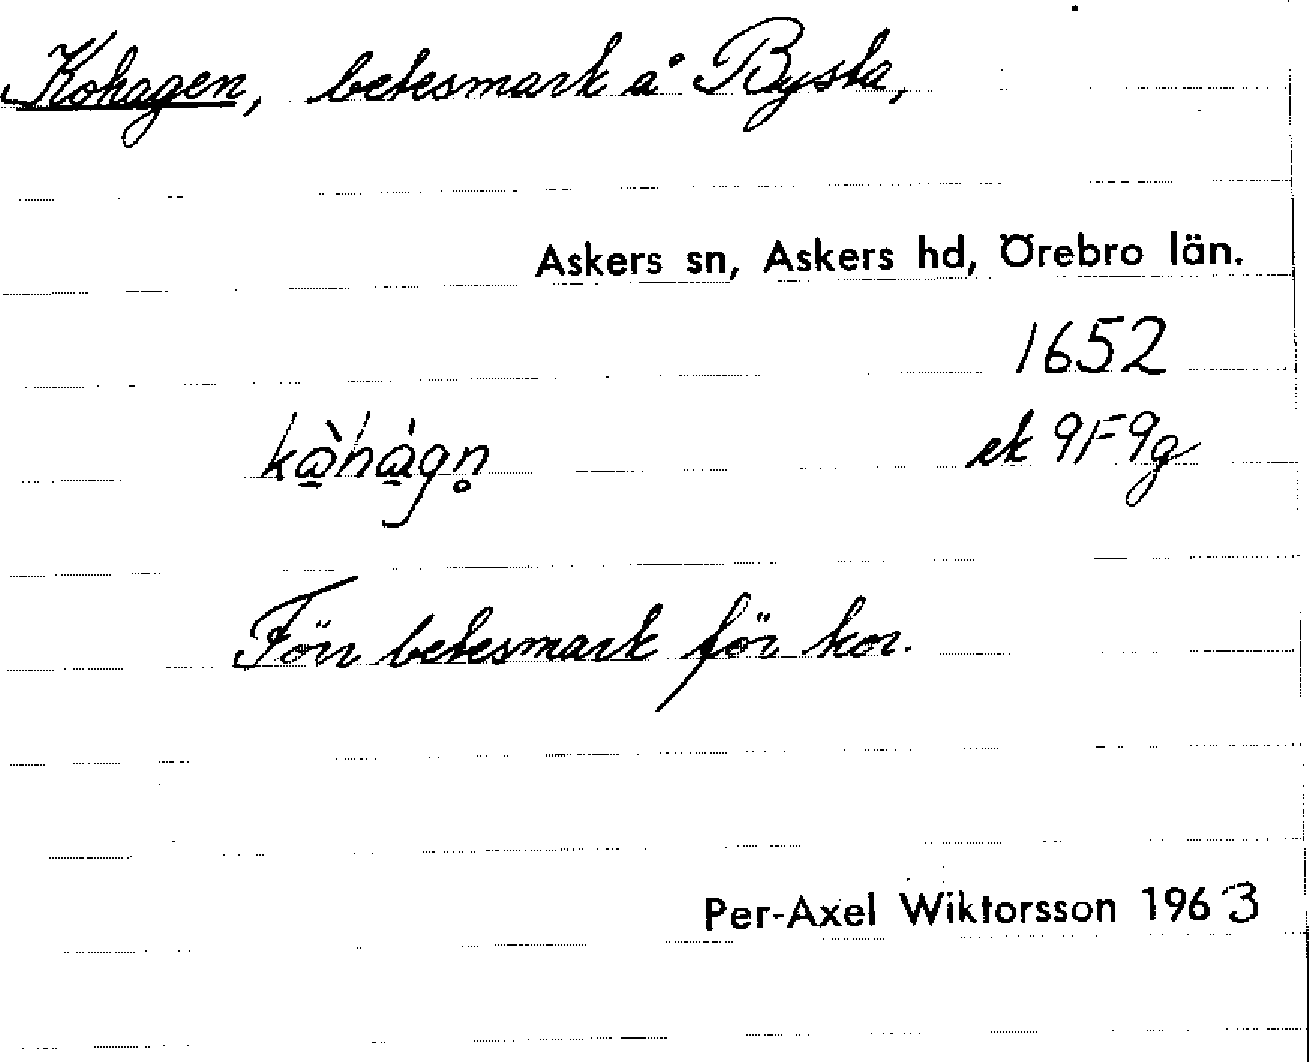 Kohagen, betesmark å Bysta,
Askers sn, Askers hd, Örebro län.
1652
ek 9F9g
Förr betesmark för kor.
Per-Axel Wiktorsson 1963